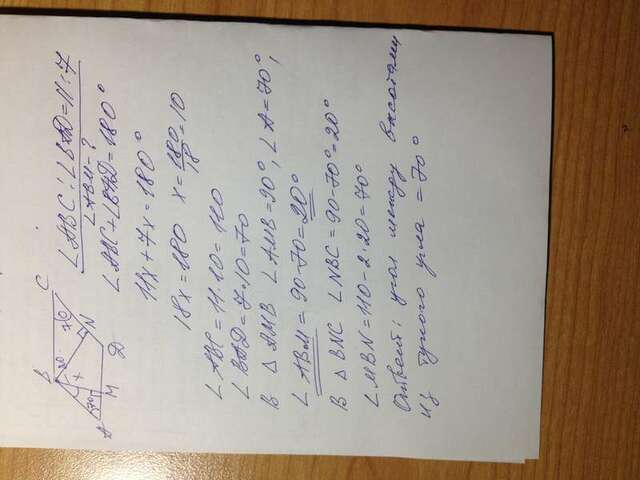 B C
20 70
x
A 70 M D N
∠ABC : ∠BAD = 11 : 7
∠ABM - ?
∠ABC + ∠BAD = 180°
11x + 7x = 180°
18x = 180 x = 180/18 = 10
∠ABC = 11 · 10 = 110
∠BAD = 7 · 10 = 70
В △ AMB ∠AMB = 90°, ∠A = 70°,
∠ABM = 90 - 70 = 20°
В △ BNC ∠NBC = 90 - 70° = 20°
∠MBN = 110 - 2 · 20 = 70°
Ответ: угол между высотами
из тупого угла = 70°